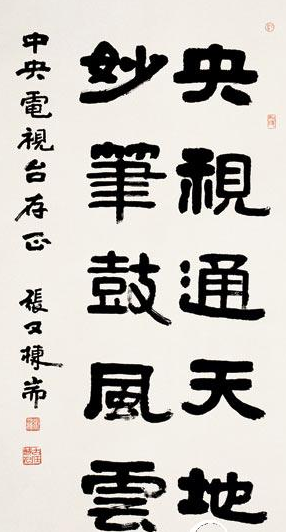 央視通天地
妙筆鼓風雲
中央電視台存正 張又棟耑